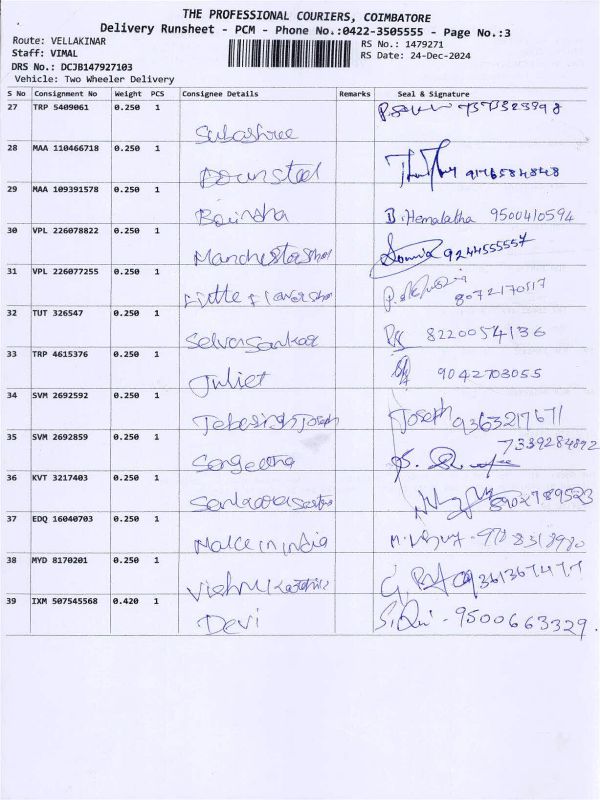 THE PROFESSIONAL COURIERS, COIMBATORE
Delivery Runsheet - PCM - Phone No.:0422-3505555 - Page No.:3
Route: VELLAKINAR
RS No.: 1479271
Staff: VIMAL
RS Date: 24-Dec-2024
DRS No.: DCJB147927103
Vehicle: Two Wheeler Delivery
S No Consignment No Weight PCS Consignee Details Remarks Seal & Signature
27 TRP 5409061 0.250 1
Subashree
28 MAA 110466718 0.250 1
9176584848
29 MAA 109391578 0.250 1
B. Hemalatha 9500410594
30 VPL 226078822 0.250 1
9244555557
31 VPL 226077255 0.250 1
Little Flower 8072170517
32 TUT 326547 0.250 1
Selvasankar 8220054136
33 TRP 4615376 0.250 1
Juliet 9042703055
34 SVM 2692592 0.250 1
Jebasingh Joseph Joseph 9363217671
35 SVM 2692859 0.250 1
Sangeetha 7339284892
36 KVT 3217403 0.250 1
8902789523
37 EDQ 16040703 0.250 1
Make in india
38 MYD 8170201 0.250 1
39 IXM 507545568 0.420 1
Devi 9500663329